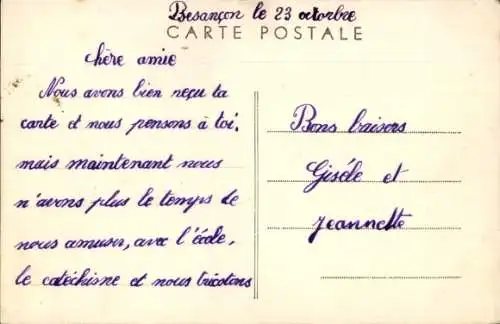 Besançon le 23 octorbre
CARTE POSTALE
chère amie
Nous avons bien reçu ta
carte et nous pensons à toi.
mais maintenant nous
n'avons plus le temps de
nous amuser, avec l'école,
le catéchisme et nous tricotons
Bons baisers
Gisèle et
Jeannette